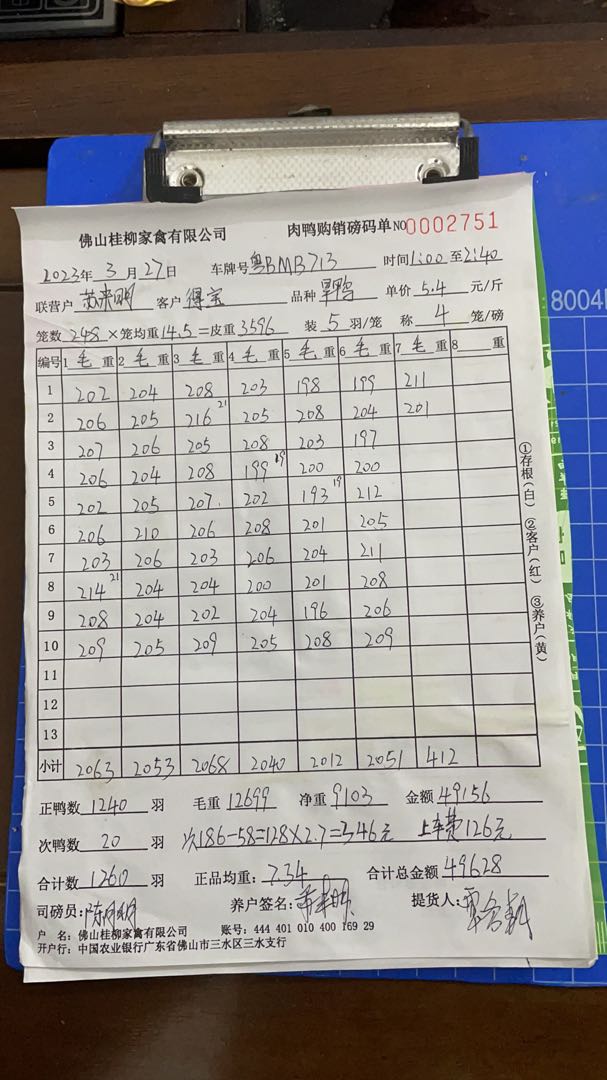 佛山桂柳家禽有限公司 肉鸭购销磅码单 NO 0002751
2023年 3 月 27 日 车牌号 粤BMB713 时间 1:00 至 2:40
联营户 苏来明 客户 得宝 品种 旱鸭 单价 5.4 元/斤
笼数 248 ×笼均重 14.5 =皮重 3596 装 5 羽/笼 称 4 笼/磅
编号 1 毛 重 2 毛 重 3 毛 重 4 毛 重 5 毛 重 6 毛 重 7 毛 重 8 重
1 202 204 208 203 198 199 211
2 206 205 216 21 205 208 204 201
3 207 206 205 208 203 197
4 206 204 208 199 19 200 200
5 202 205 207. 202 193 19 212
6 206 210 206 208 201 205
7 203 206 203 206 204 211
8 214 21 204 204 200 201 208
9 208 204 202 204 196 206
10 209 205 209 205 208 209
11
12
13
小计 2063 2053 2068 2040 2012 2051 412
正鸭数 1240 羽 毛重 12699 净重 9103 金额 49156
次鸭数 20 羽 次186-58=128×2.7=346元 上车费126元
合计数 1260 羽 正品均重: 7.34 合计总金额 49628
司磅员: 养户签名: 提货人:
户 名: 佛山桂柳家禽有限公司 账号: 444 401 010 400 169 29
开户行: 中国农业银行广东省佛山市三水区三水支行
①存根(白) ②客户(红) ③养户(黄)
8004